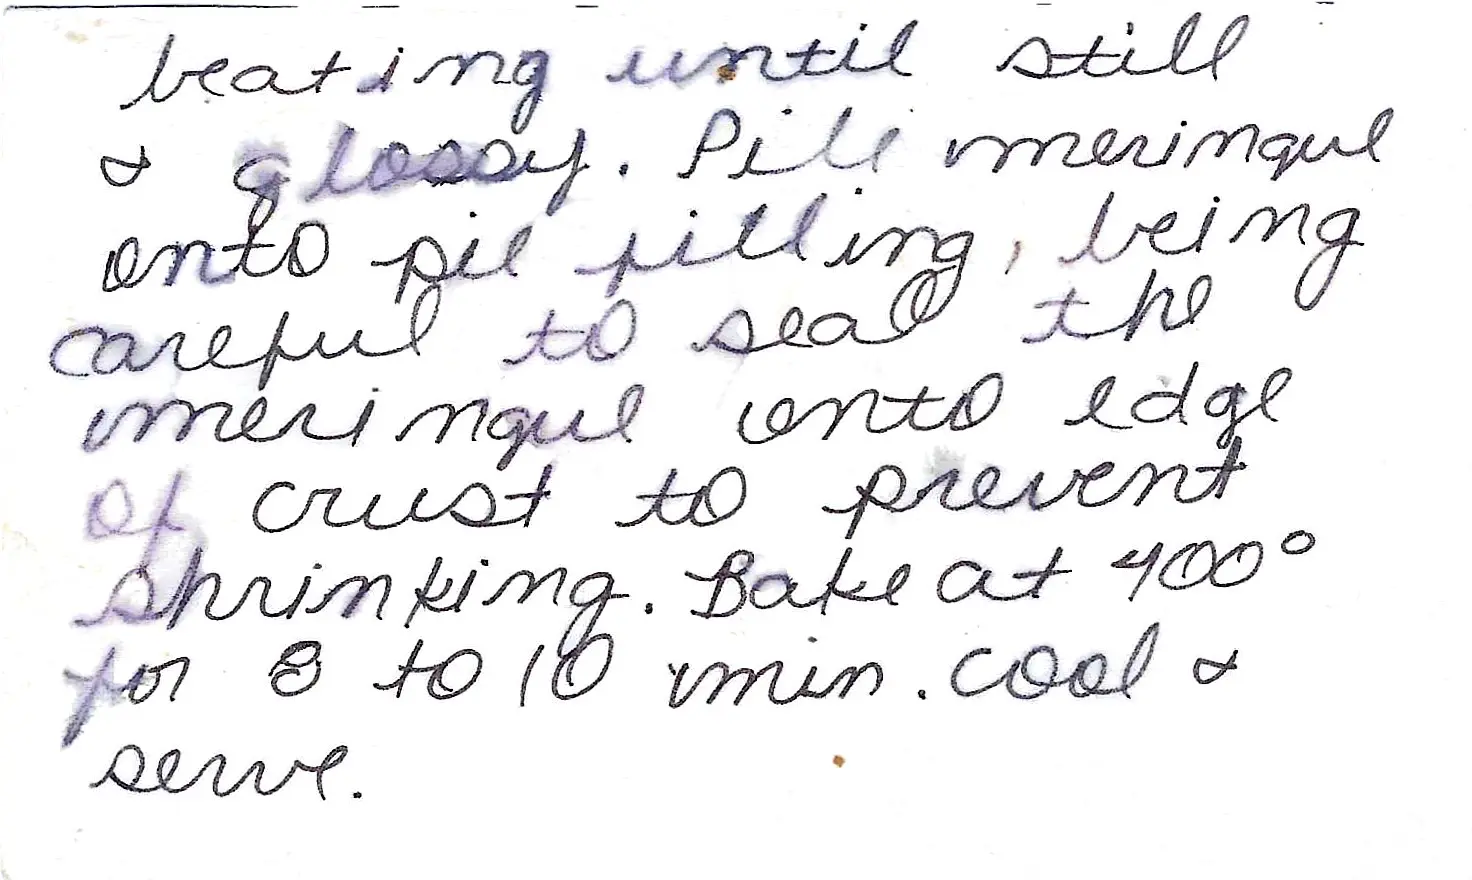 beating until still
& glossy. Pile meringue
onto pie filling, being
careful to seal the
meringue onto edge
of crust to prevent
shrinking. Bake at 400°
for 8 to 10 min. Cool &
serve.